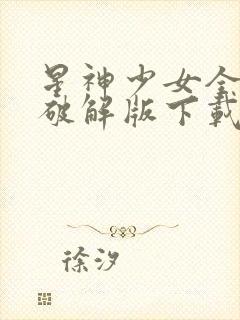 星神少女全
破解版下載
徐汐